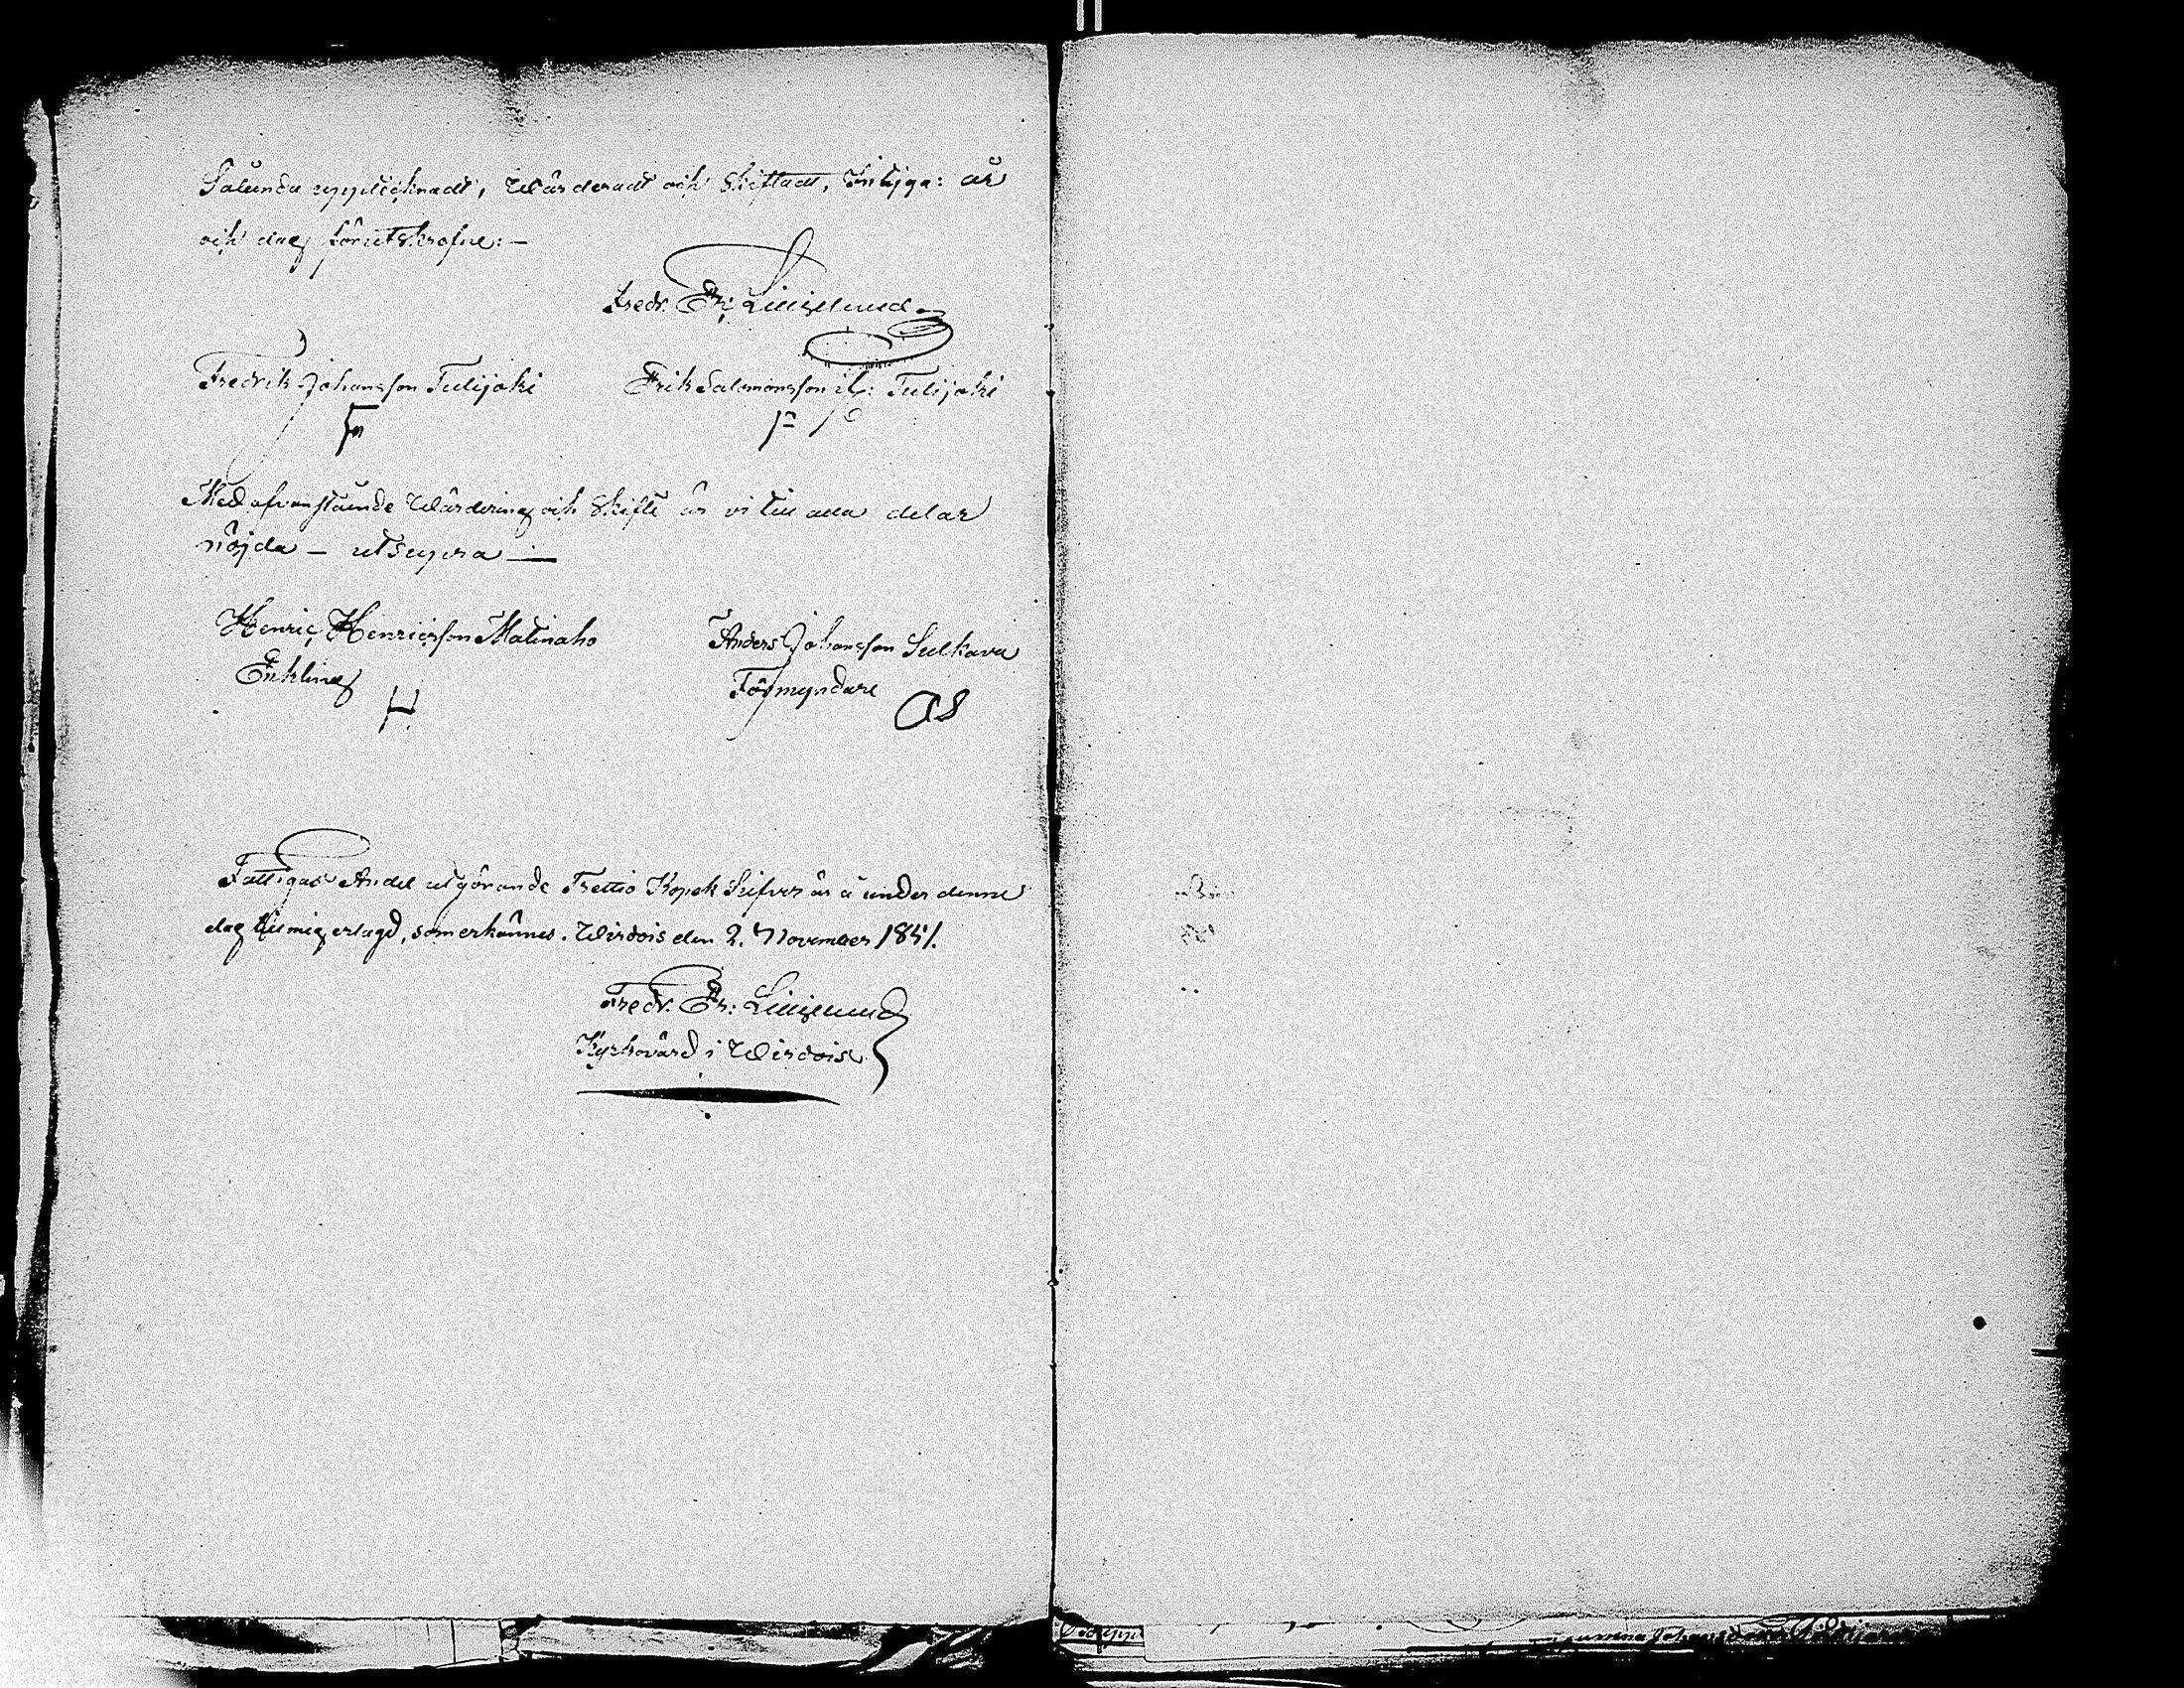 Sålunda upptecknadt, Wärderadt och Skiftadt, intyga: år
och dag förutskrefne:-
Fredr. Fr: Lilljelund
Fredrik Johansson Tulijoki
Erik Salomonsson Tulijoki
Med ofvanstående Wärdering och Skifte är vi till alla delar
nöjda - utsupra -
Henric Henricsson Matinaho
Anders Johansson Sulkava
Enkling
Förmyndare
AS
Fattigas Andel utgörande Trettio Kopek Silfver är å under denne
dag till mig erlagd, som erkännes. Wirdois den 2. November 1851.
Fredr. Fr: Lilljelund
Kyrkovärd i Wirdois